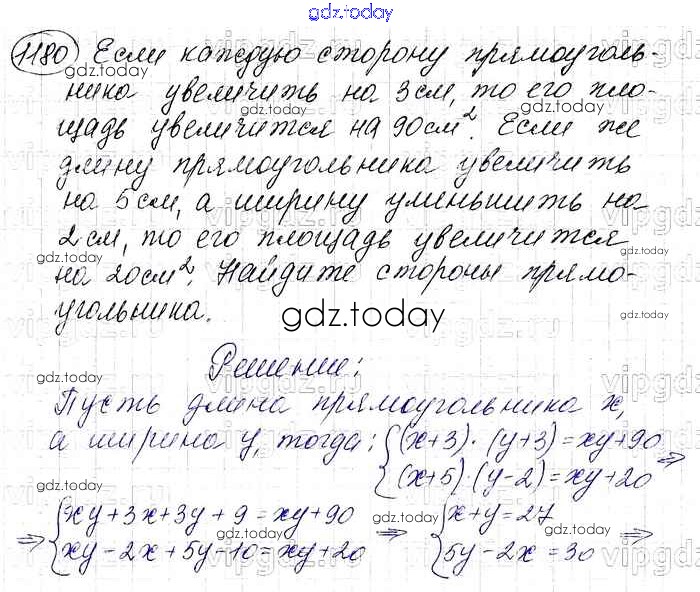 gdz.today
1180 Если каждую сторону прямоуголь-
ника увеличить на 3 см, то его пло-
щадь увеличится на 90 см². Если же
длину прямоугольника увеличить
на 5 см, а ширину уменьшить на
2 см, то его площадь увеличится
на 20 см². Найдите стороны прямо-
угольника.
gdz.today
Решение:
Пусть длина прямоугольника x,
а ширина y, тогда: {(x+3)·(y+3)=xy+90
(x+5)·(y-2)=xy+20 ⇒
⇒ {xy+3x+3y+9=xy+90 ⇒ {x+y=27
xy-2x+5y-10=xy+20 5y-2x=30 ⇒